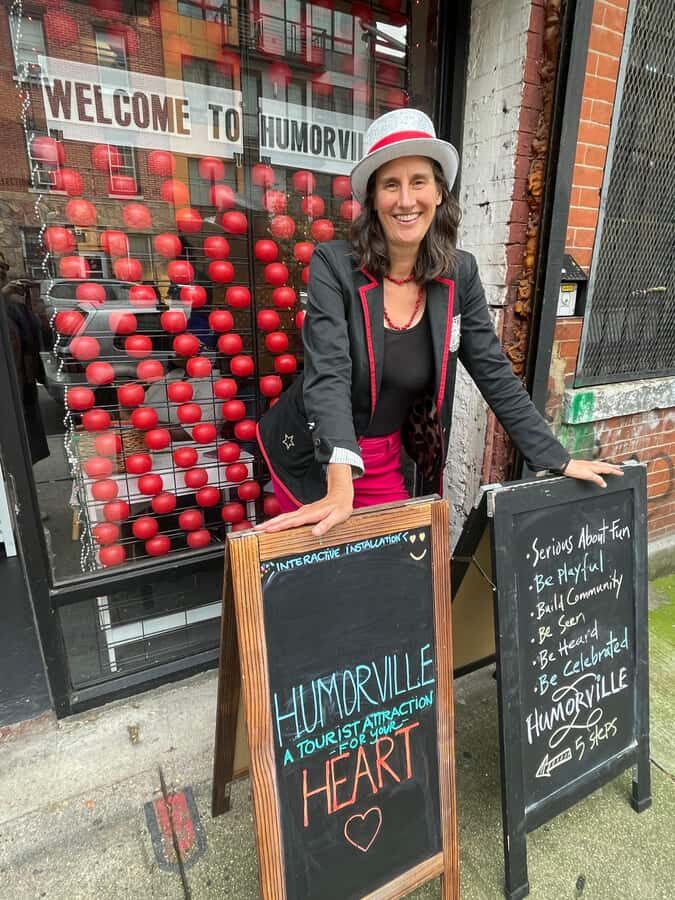 WELCOME TO HUMORVIL
INTERACTIVE INSTALLATION
HUMORVILLE
A TOURIST ATTRACTION
- FOR YOUR -
HEART
• SERIOUS ABOUT FUN
• BE PLAYFUL
• BUILD COMMUNITY
• BE SEEN
• BE HEARD
• BE CELEBRATED
HUMORVILLE
5 STEPS